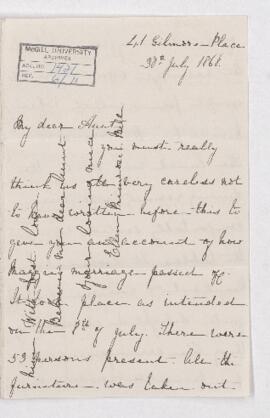 McGILL UNIVERSITY
ARCHIVES
ACC. NO. 1427
REF. 6/11
41 Gilmore Place
30th July 1868.
My dear Aunt
you must really
think us all very careless not
to have written before this to
give you an account of how
Maggie's marriage passed off.
It took place as intended
on the 9th of July. There were
53 persons present. All the
furniture was taken out
With best love
Believe me dear Aunt
Your loving niece
Ellen